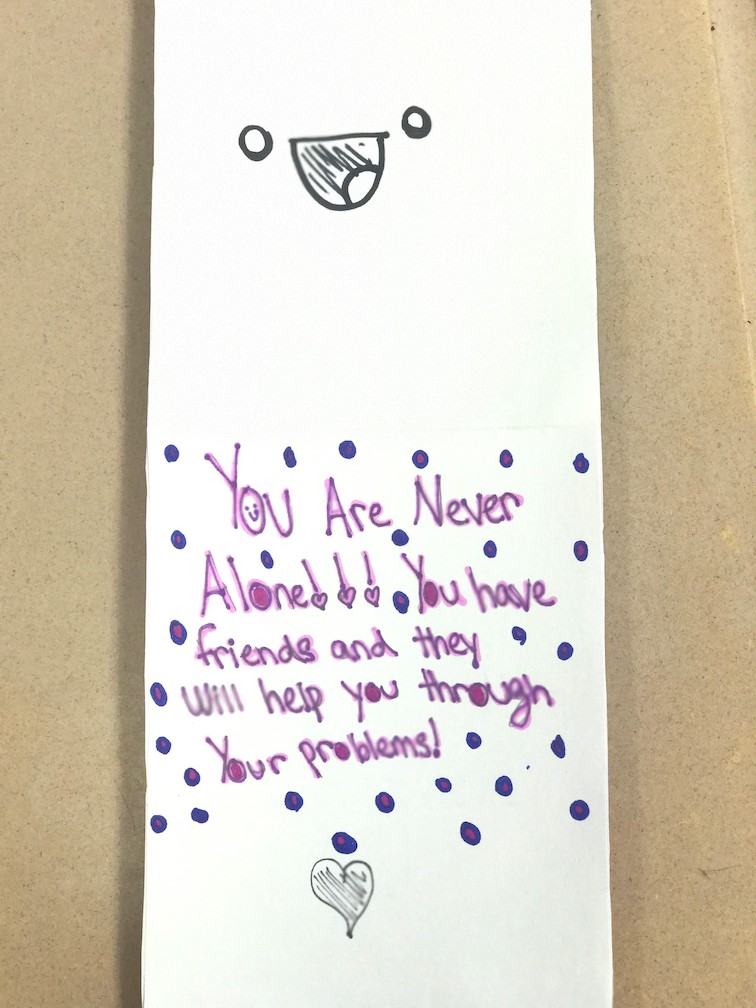 You Are Never
Alone!!! You have
friends and they
will help you through
Your problems!